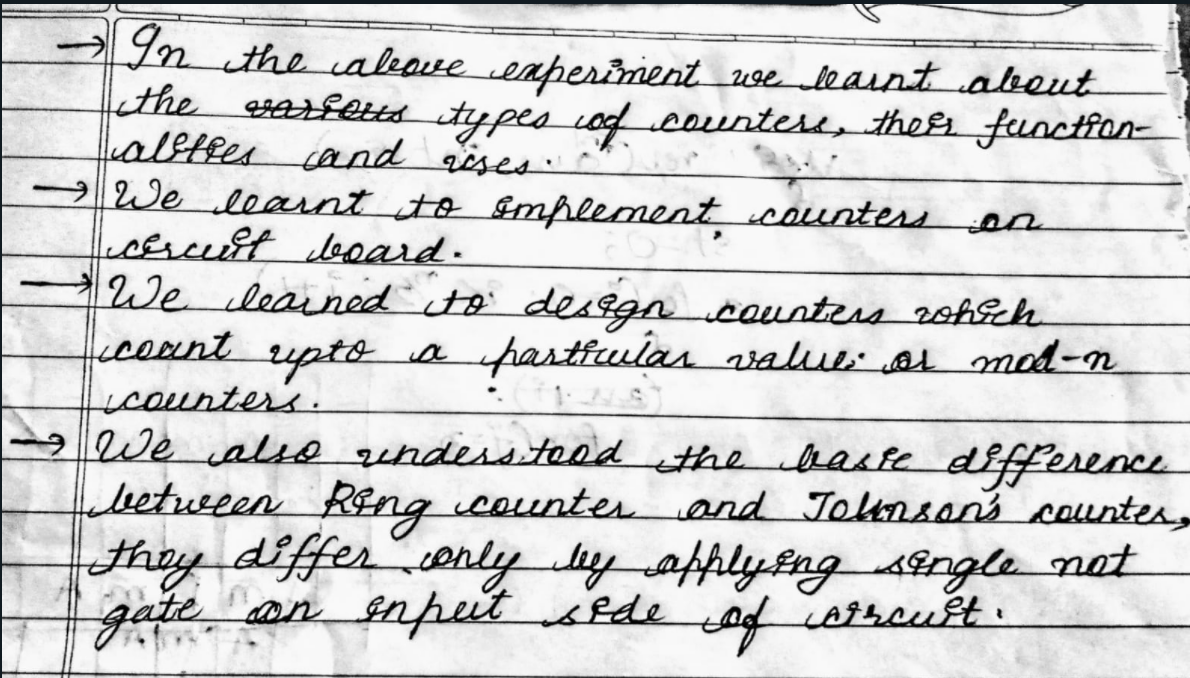 → In the above experiment we learnt about
the various types of counters, their function-
alities and uses.
→ We learnt to implement counters on
circuit board.
→ We learned to design counters which
count upto a particular value or mod-n
counters.
→ We also understood the basic difference
between Ring counter and Johnson's counter,
they differ only by applying single not
gate on input side of circuit.